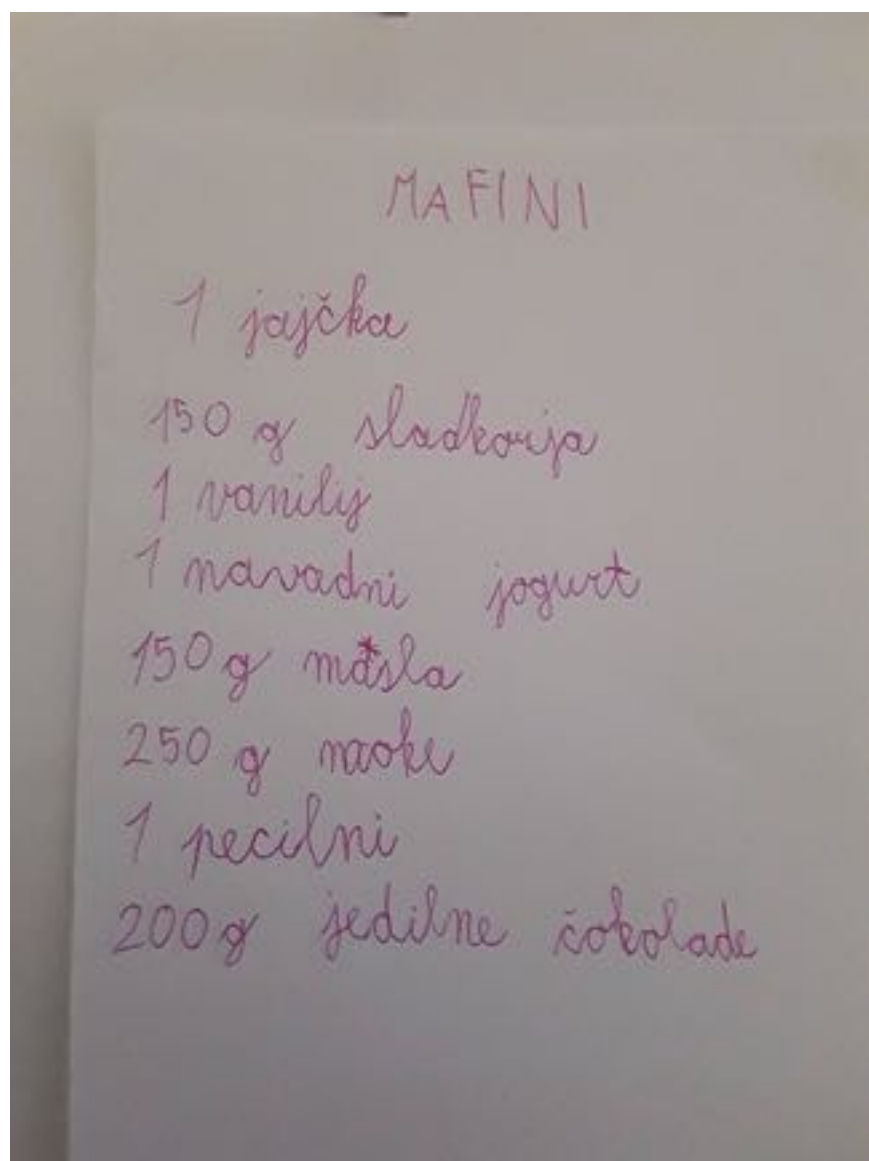 MAFINI
1 jajčka
150 g sladkorja
1 vanilij
1 navadni jogurt
150 g masla
250 g moke
1 pecilni
200g jedilne čokolade